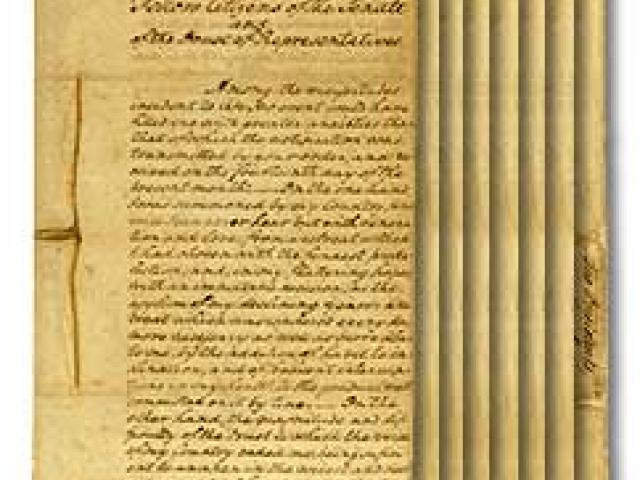 Fellow Citizens of the Senate
and
of the House of Representatives
Among the vicissitudes
incident to life, no event could have
filled me with greater anxieties than
that of which the notification was
transmitted by your order, and re
ceived on the fourteenth day of the
present month. — On the one hand,
I was summoned by my Country,
hear but with venera-
tion and love, from a retreat which
I had chosen with the fondest predi-
lection, and, in my flattering hopes,
with an immutable decision, as the
asylum of my declining years: a re-
treat which was rendered every day
more necessary as well as more dear
to me, by the addition of habit to in-
clination, and of frequent interrup-
tions in my health to the gradual waste
committed on it by time. — On the
other hand, the magnitude and dif-
ficulty of the trust to which the voice
of my Country called me, being suffici-
ent to awaken in the wisest and most